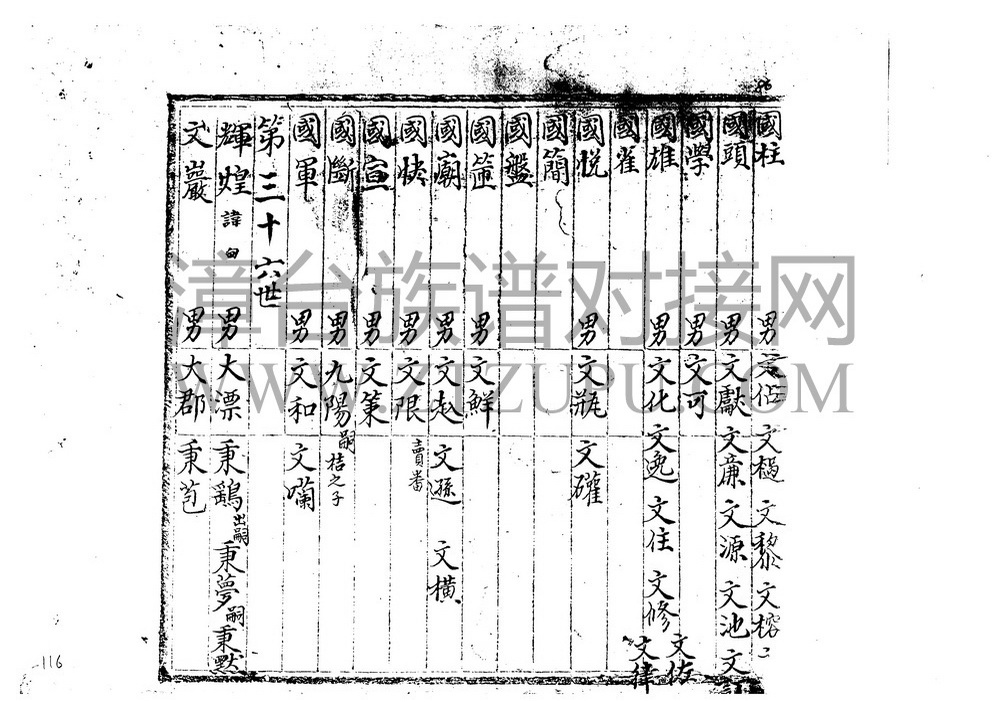 86
國柱 男 文 文 文黎 文榕
國頭 男 文獻 文廉 文源 文池 文
國學 男 文可
國雄 男 文化 文逸 文住 文修 文佐 文律
國雀
國悅 男 文瓶 文確
國簡
國盤
國 男 文鮮
國廟 男 文赴 文遜 文橫
國快 男 文限 賣番
國宣 男 文策
國斷 男 九陽 嗣桔之子
國軍 男 文和 文嘲
第三十六世
輝煌 諱 男 大漂 秉鷂 出嗣 秉夢 嗣 秉默
文巖 男 大郡 秉苞
116
漳台族谱对接网
WWW.ZTZUPU.COM